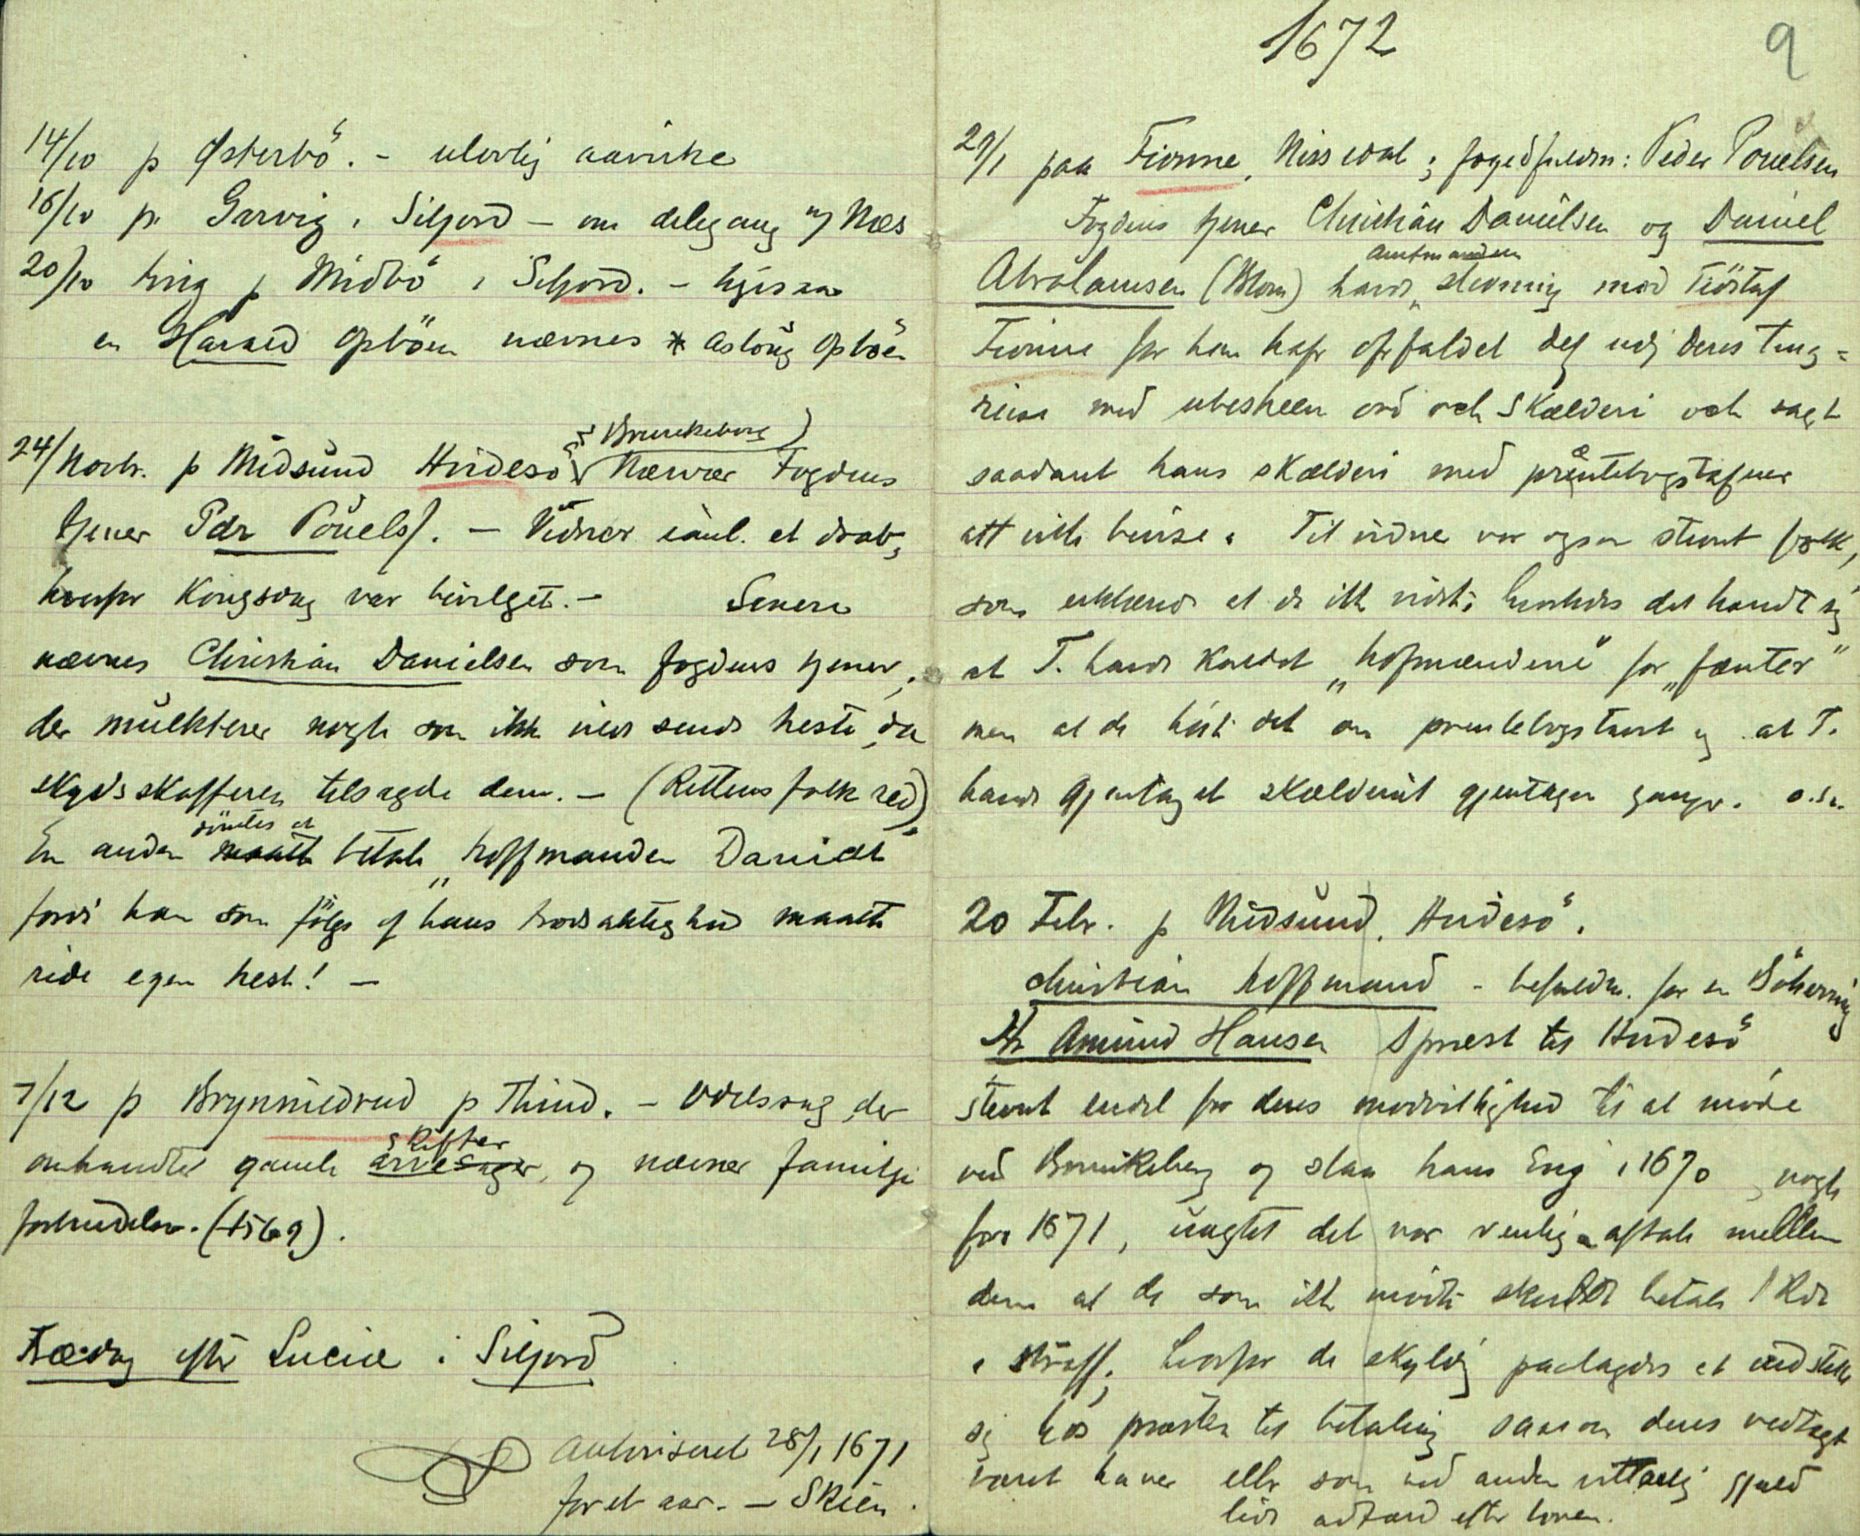 14/10 p Østerbö. - ulovlig aavirke
16/10 p Garvig i Siljord - om delegang m/ Næs
20/10 ting p Midbö i Seljord. -
en Harald Opböen nævnes Aslöug Opböen
24/Novbr. p Midsund Hvidesö (Brunkeberg) Nærvær Fogdens
tjener Pdr Pöuels/. - Vidner i anl. et drab,
hvorfor Kongsdag var bevilget. - Senere
nævnes Christian Danielsen som fogdens tjener,
der mulkterer nogle som ikke vilde sende heste, da
skydsskafferen tilsagde dem. - (Rettens folk red)
En anden maatte dömtes at betale "hoffmanden Daniel"
fordi han som fölge af hans trodsaktighed maatte
ride egen hest! -
7/12 p Brynnildrud p Thind. - Odelssag, der
omhandler gamle arvesager skifter, og nævner familje
forbindelser. (1569).
Trædag efter Luciæ i Siljord
Autoriseret 28/1 1671
for et aar. - Skien.
1672
9
29/1 paa Fionne, Nissedal; fogedfuldm: Peder Pouelsen
Fogdens tjener Christian Danielsen og Daniel
Abrahamsen (Blom) havde amtmandens stevning mod Tiöstaf
Fionne for han hafr ofrfaldet def udj deres Ting=
reise med ubeskeen ord och Skælderi och sagt
saadant hans skælderi med præntebogstafuer
att ville bevise. Til vidner var ogsaa stevnt folk,
som erklærede at de ikke vidste hvorledes det havde sig
at T. havde kaldet "hofmændene" for "fænter"
men at de hörte det om prentebogstavet og at T.
havde gjentaget skælderiet gjentagne ganger. o.s.v.
20 Febr. p Midsund, Hvidesö.
Christian hoffmand - befuldm. for sin Söherring
Hr Amund Hansen Spræst til Hvidesö
stevnt endel for deres modvillighed til at möde
ved Brunkeberg og slaa hans Eng i 1670, nogle
for 1671, uagtet det var venlig aftale mellem
dem at de som ikke mödte skulde betale 1 Rdr
i straff; hvorfor de skyldig paalagdes at indstille
sig hos præsten til betaling saasom deres vedtægt
været haver eller som ved anden vitterlig gjæld
lide adfærd efter loven.